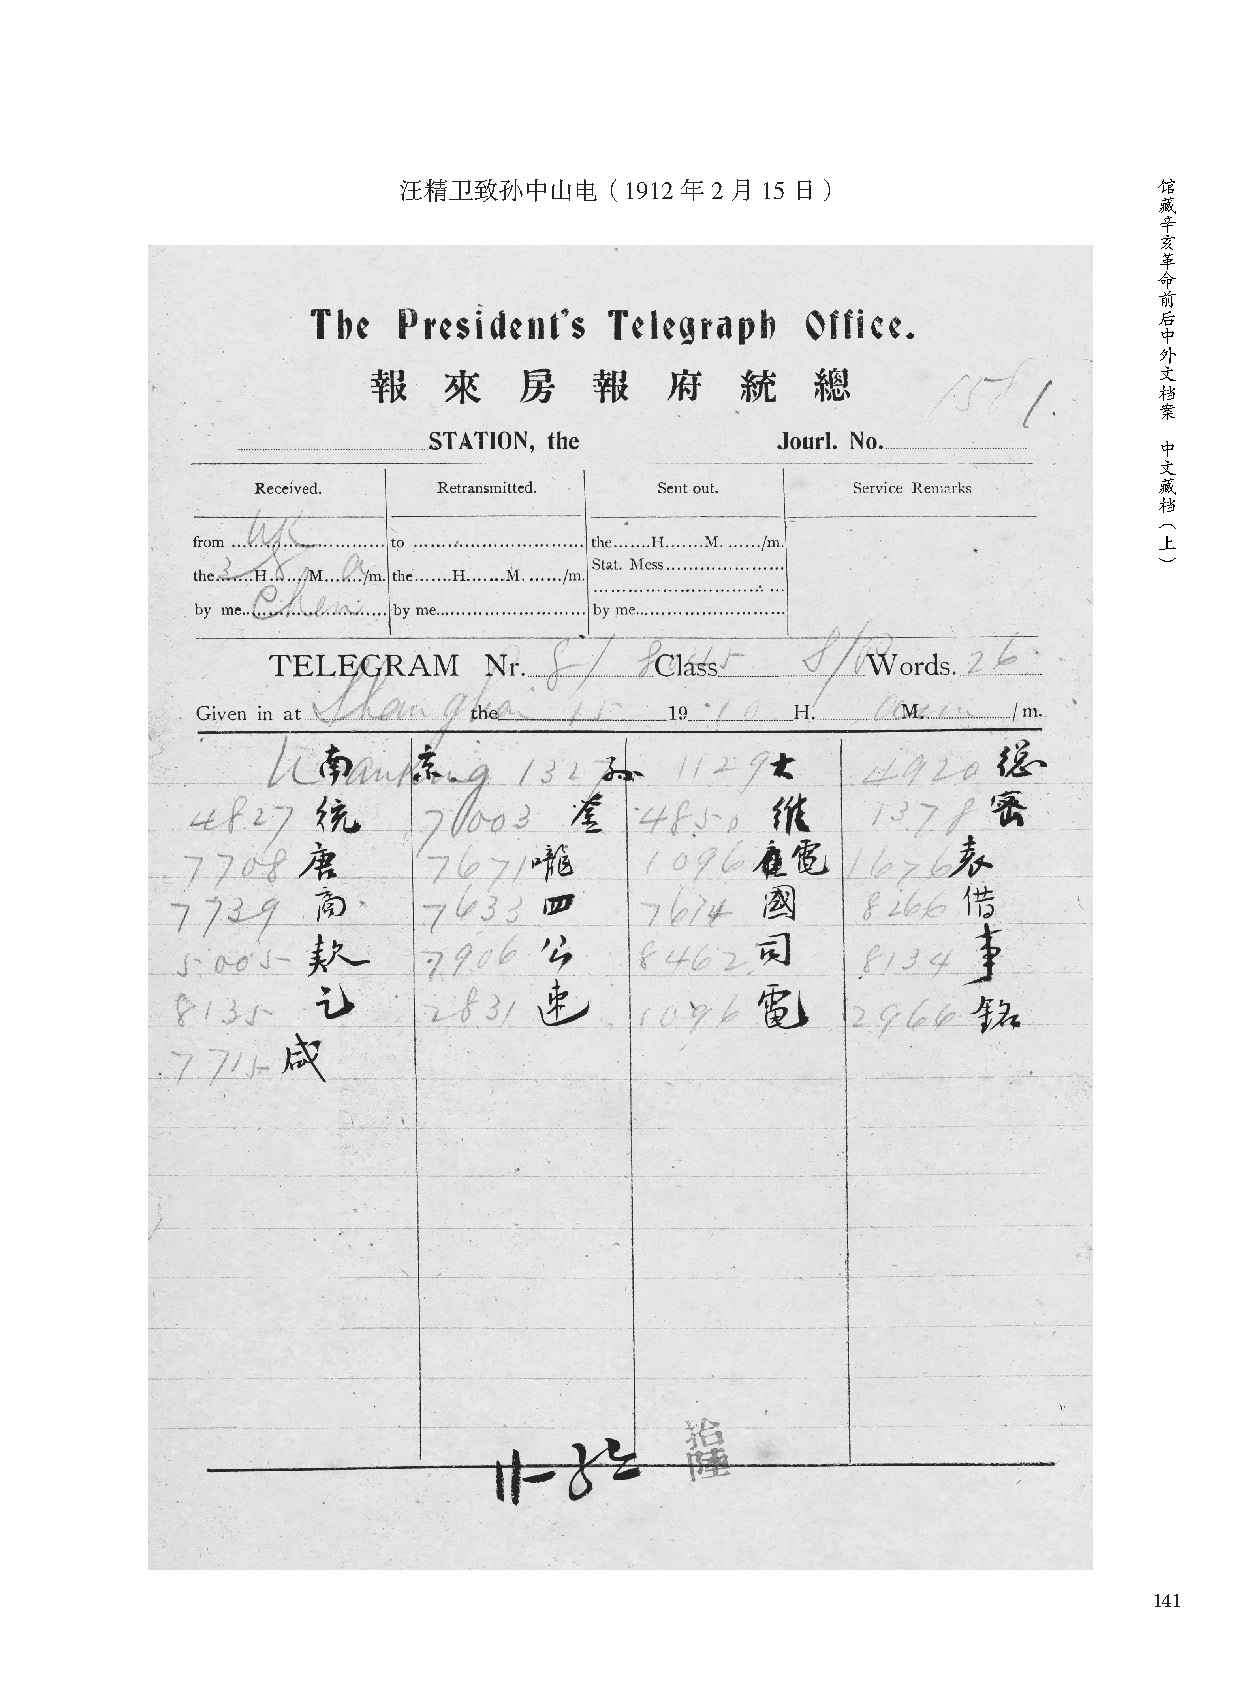 汪精卫致孙中山电（1912 年 2 月 15 日）
馆藏辛亥革命前后中外文档案 中文藏档（上）
The President's Telegraph Office.
報 來 房 報 府 統 總
STATION, the Jourl. No.
Received. Retransmitted. Sent out. Service Remarks
from to the H. M. /m.
the H. M. /m. the H. M. /m. Stat. Mess
by me Chen by me by me
TELEGRAM Nr. Class Words. 26
Given in at Shanghai the 15 19 H. M. /m.
南 京 孙 1129 大 4920 總
4827 統 7003 鉴 4850 維 1378 密
7708 唐 7671 嚨 1096 電 1676 袁
7739 商 7633 四 7614 國 8266 借
5005 欵 7906 公 8462 司 8134 事
8135 已 2831 速 1096 電 2966 銘
7715 咸
拾
陸
141